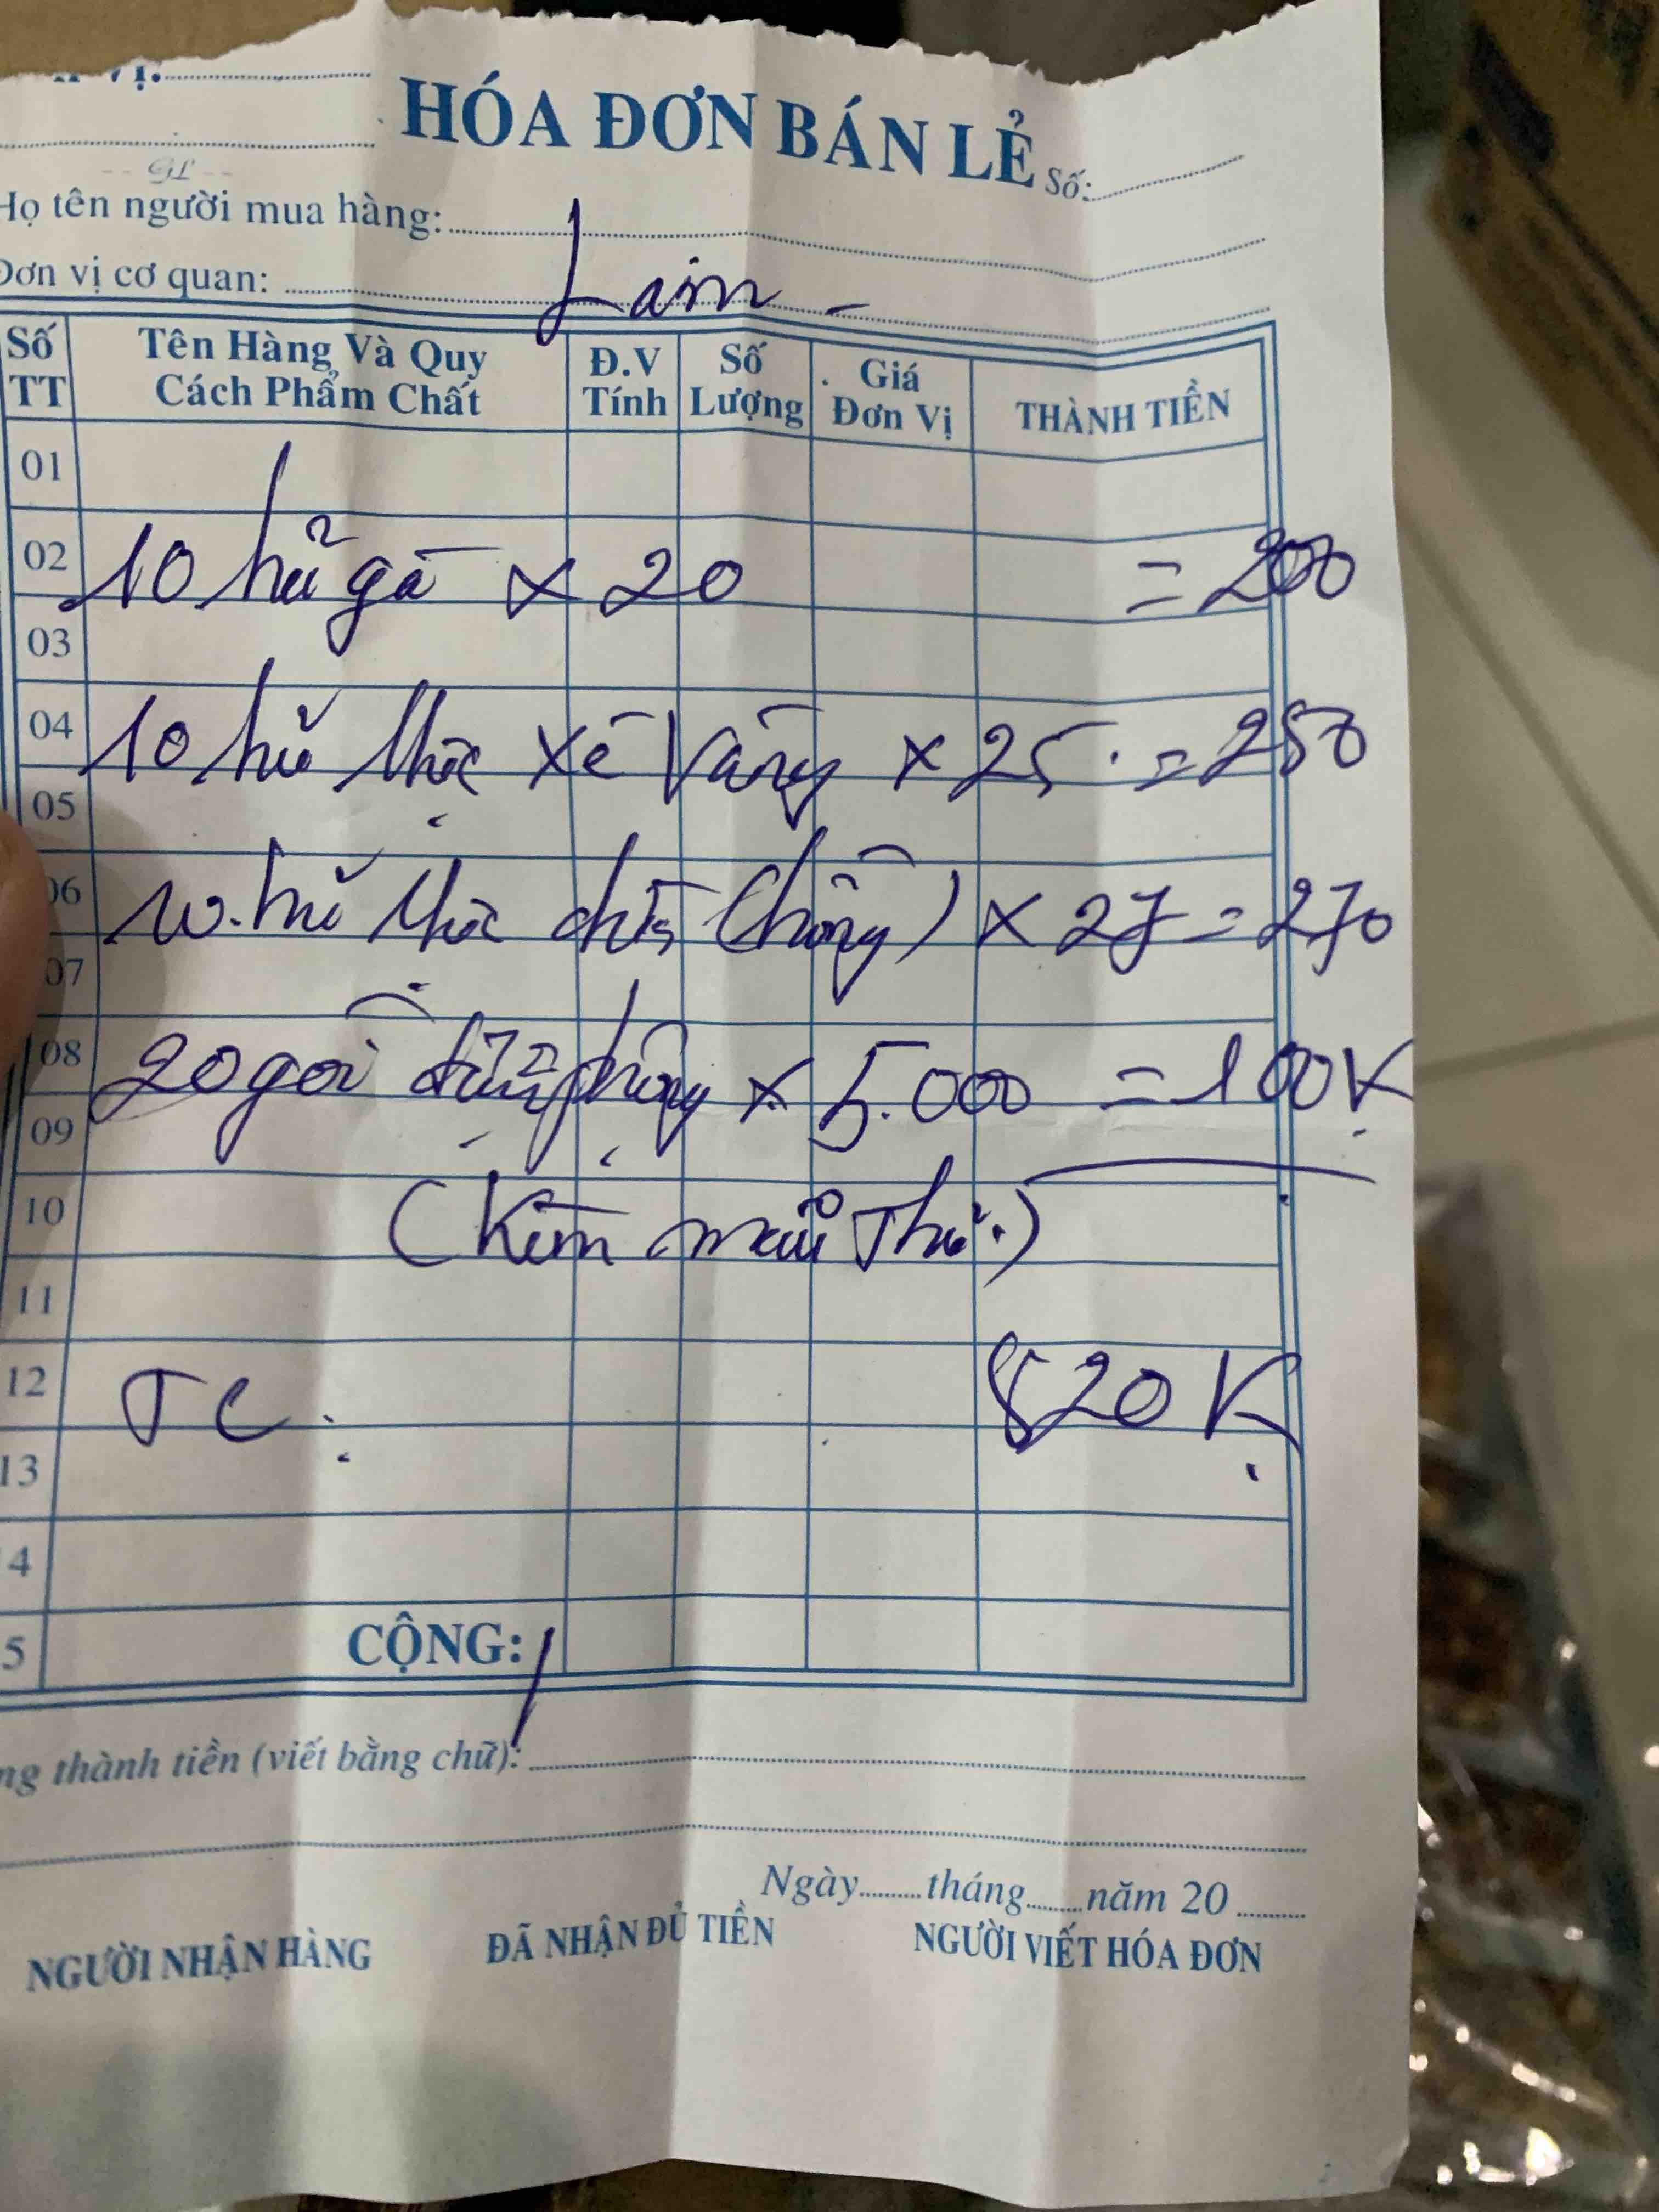 HÓA ĐƠN BÁN LẺ Số:
Họ tên người mua hàng:
Đơn vị cơ quan: Lam
Số TT Tên Hàng Và Quy Cách Phẩm Chất Đ.V Tính Số Lượng Giá Đơn Vị THÀNH TIỀN
01
02 10 hủ gà x 20 = 200
03
04 10 hủ mực xé vàng x 25 = 250
05
06 10 hủ mực (hồng) x 27 = 270
07
08 20 gói đậu phộng x 5.000 = 100K
09
10 (Kèm mẫu Thử.)
11
12 TC: 820K
13
4
5 CỘNG:
ng thành tiền (viết bằng chữ):
Ngày tháng năm 20
NGƯỜI NHẬN HÀNG ĐÃ NHẬN ĐỦ TIỀN NGƯỜI VIẾT HÓA ĐƠN